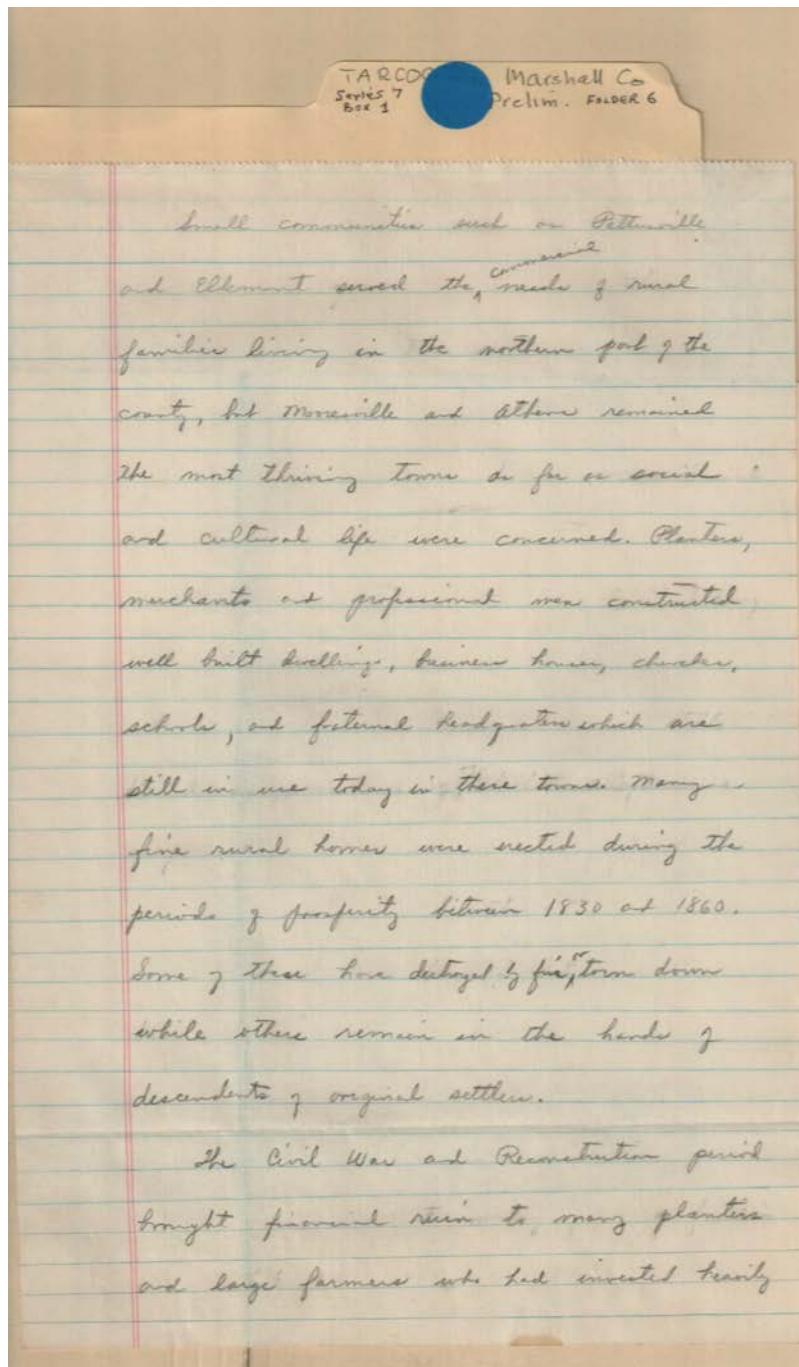 TARCOG Marshall Co
Series 7 Prelim. FOLDER 6
Box 1
Small communities such as Pettusville
commercial
and Elkmont served the needs of rural
families living in the northern part of the
county, but Mooresville and Athens remained
the most thriving towns as far as social
and cultural life were concerned. Planters,
merchants and professional men constructed
well built dwellings, business houses, churches,
schools, and fraternal headquaters which are
still in use today in these towns. Many
fine rural homes were erected during the
periods of prosperity between 1830 and 1860.
or
Some of these have destroyed by fire, torn down
while others remain in the hands of
descendents of original settlers.
The Civil War and Reconstruction period
brought financial ruin to many planters
and large farmers who had invested heavily